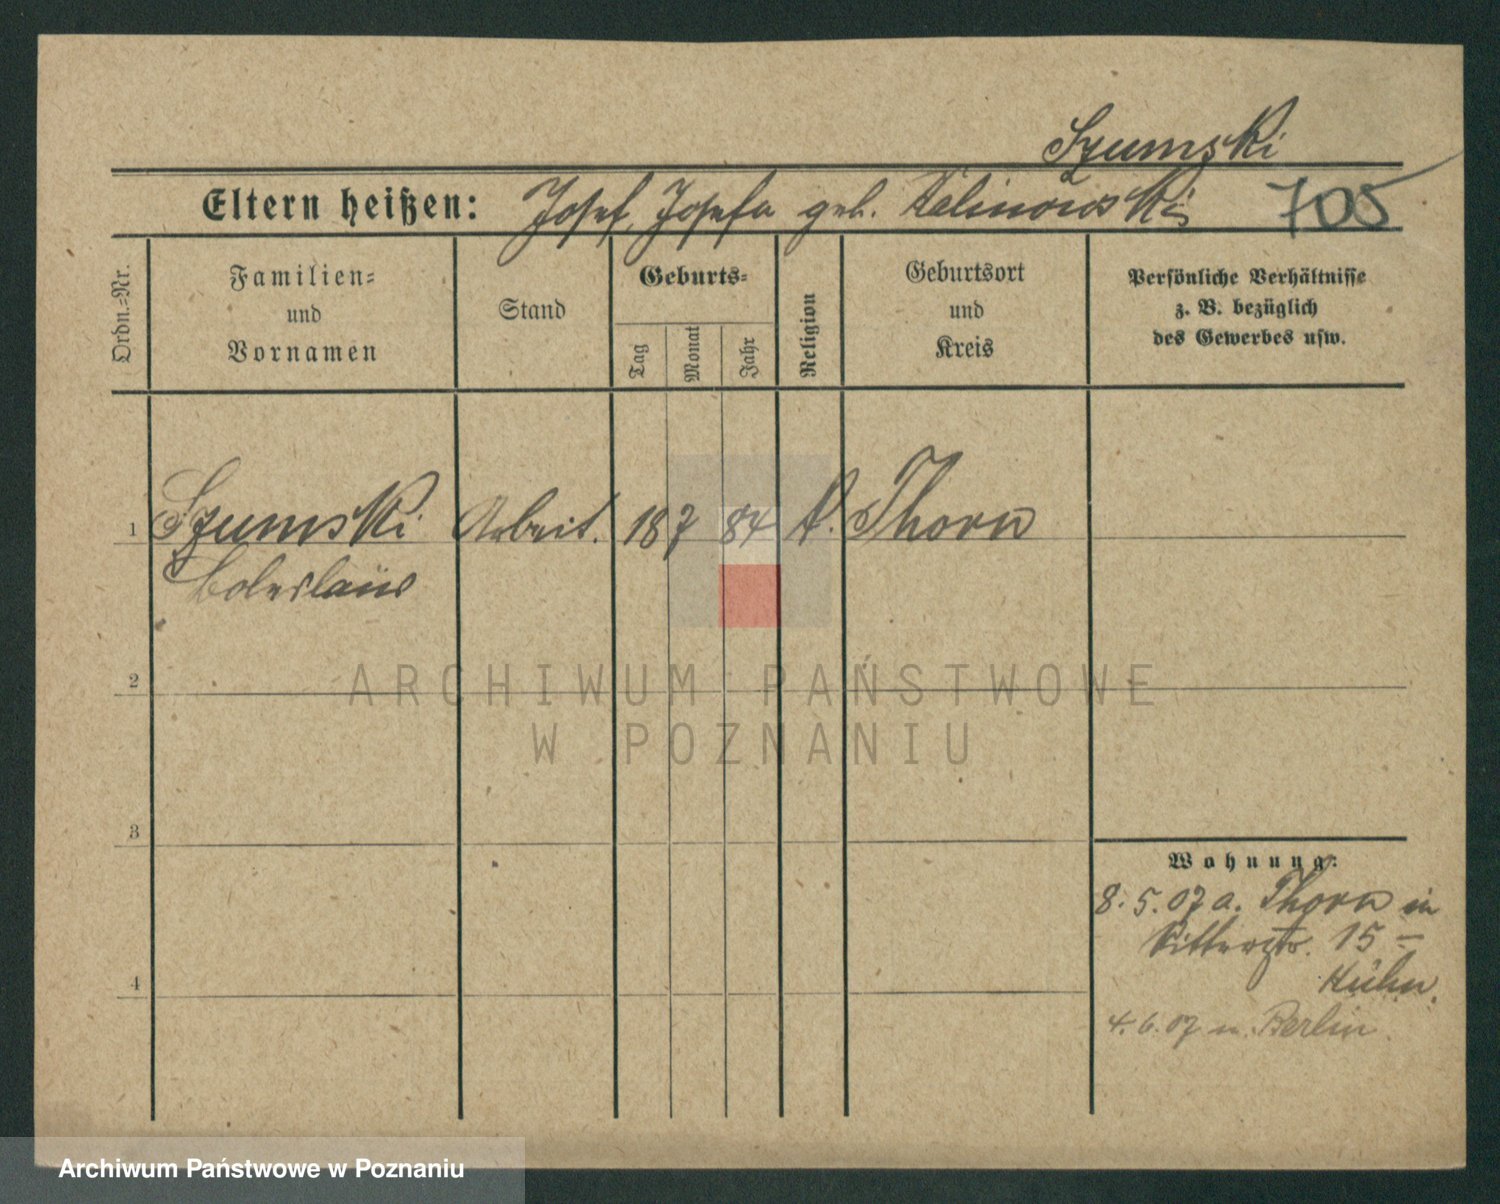 Szumski
Eltern heißen: Josef, Josefa geb. Kalinowski 705
Ordn.-Nr.
Familien-
und
Vornamen
Stand
Geburts-
Tag
Monat
Jahr
Religion
Geburtsort
und
Kreis
Persönliche Verhältnisse
z. B. bezüglich
des Gewerbes usw.
1 Szumski Arbeit. 18 7 84 k. Thorn
Boleslaus
2
3
4
Wohnung:
8. 5. 07 a. Thorn in
Ritterstr. 15 -
Kühn.
4. 6. 07 n. Berlin
ARCHIWUM PAŃSTWOWE
W POZNANIU
Archiwum Państwowe w Poznaniu